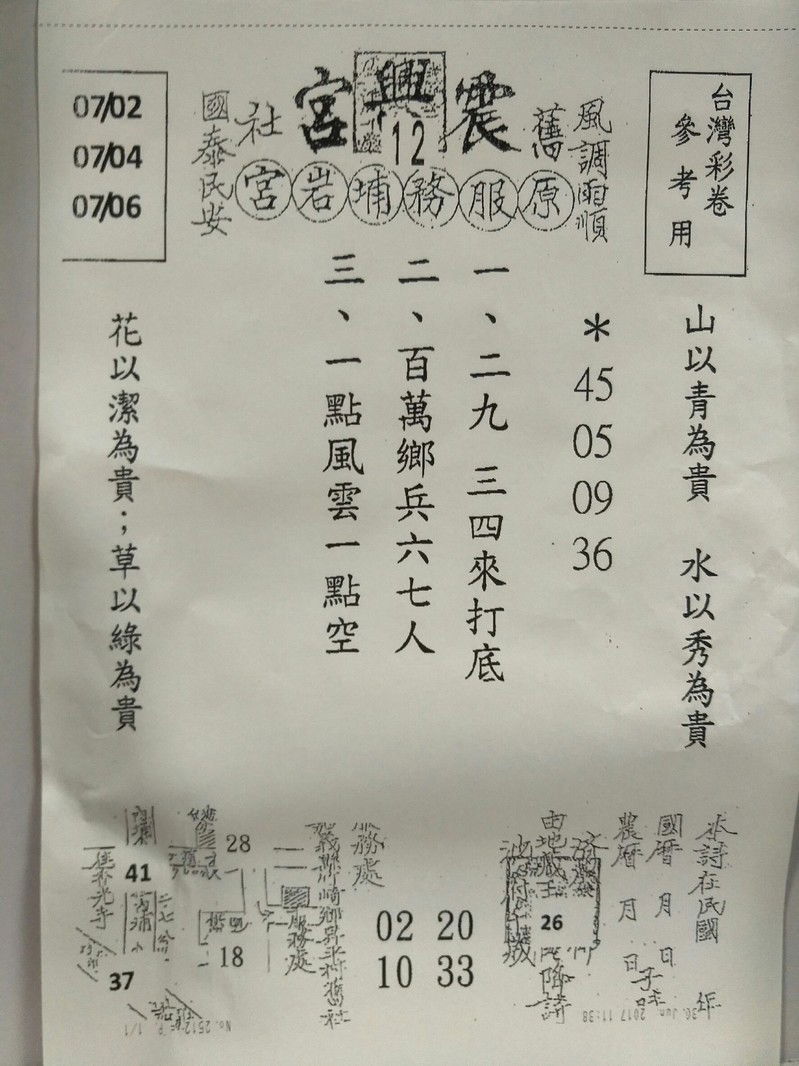 台灣彩卷
參考用
風調雨順
舊
震興宮
12
社
國泰民安
原服務埔岩宮
07/02
07/04
07/06
山以青為貴 水以秀為貴
＊ 45 05 09 36
一、二九 三四來打底
二、百萬鄉兵六七人
三、一點風雲一點空
花以潔為貴；草以綠為貴
詩在民國 年
國曆 月 日
農曆 月 日子時
26
降詩
02 20
10 33
服務處
服務處
28
18
41
37
30. Jun. 2017 11:38
No. 2512 P. 1/1